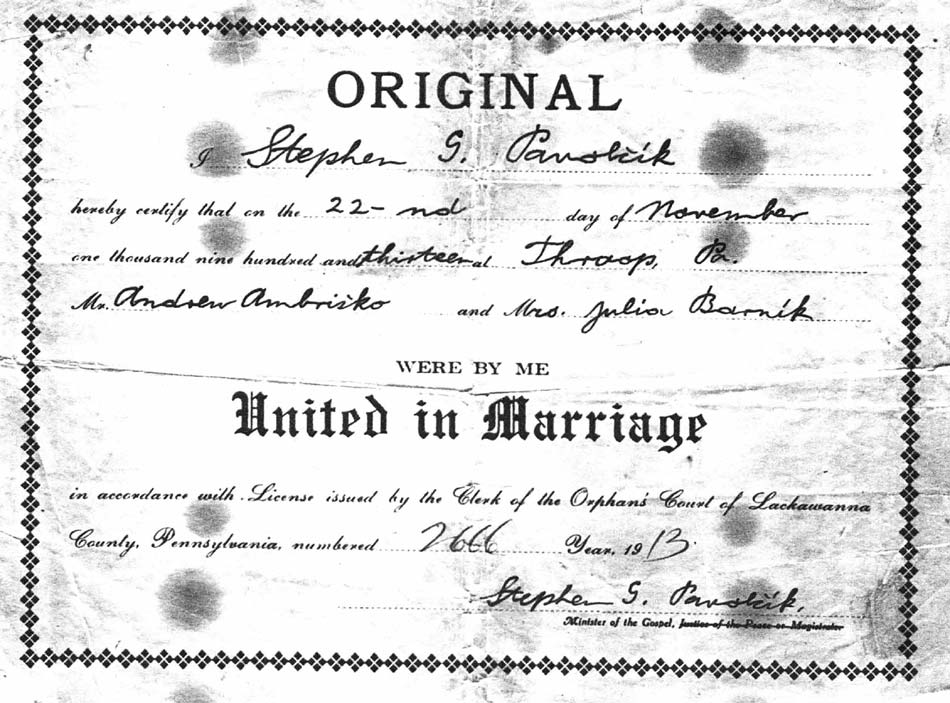 ORIGINAL
I Stephen G. Pavolčík
hereby certify that on the 22-nd day of November
one thousand nine hundred and thirteen at Throop, Pa.
Mr. Andrew Ambriško and Mrs. Julia Barník
WERE BY ME
United in Marriage
in accordance with License issued by the Clerk of the Orphans' Court of Lackawanna
County, Pennsylvania, numbered 2666 Year, 1913.
Stephen G. Pavolčík,
Minister of the Gospel, Justice of the Peace or Magistrate